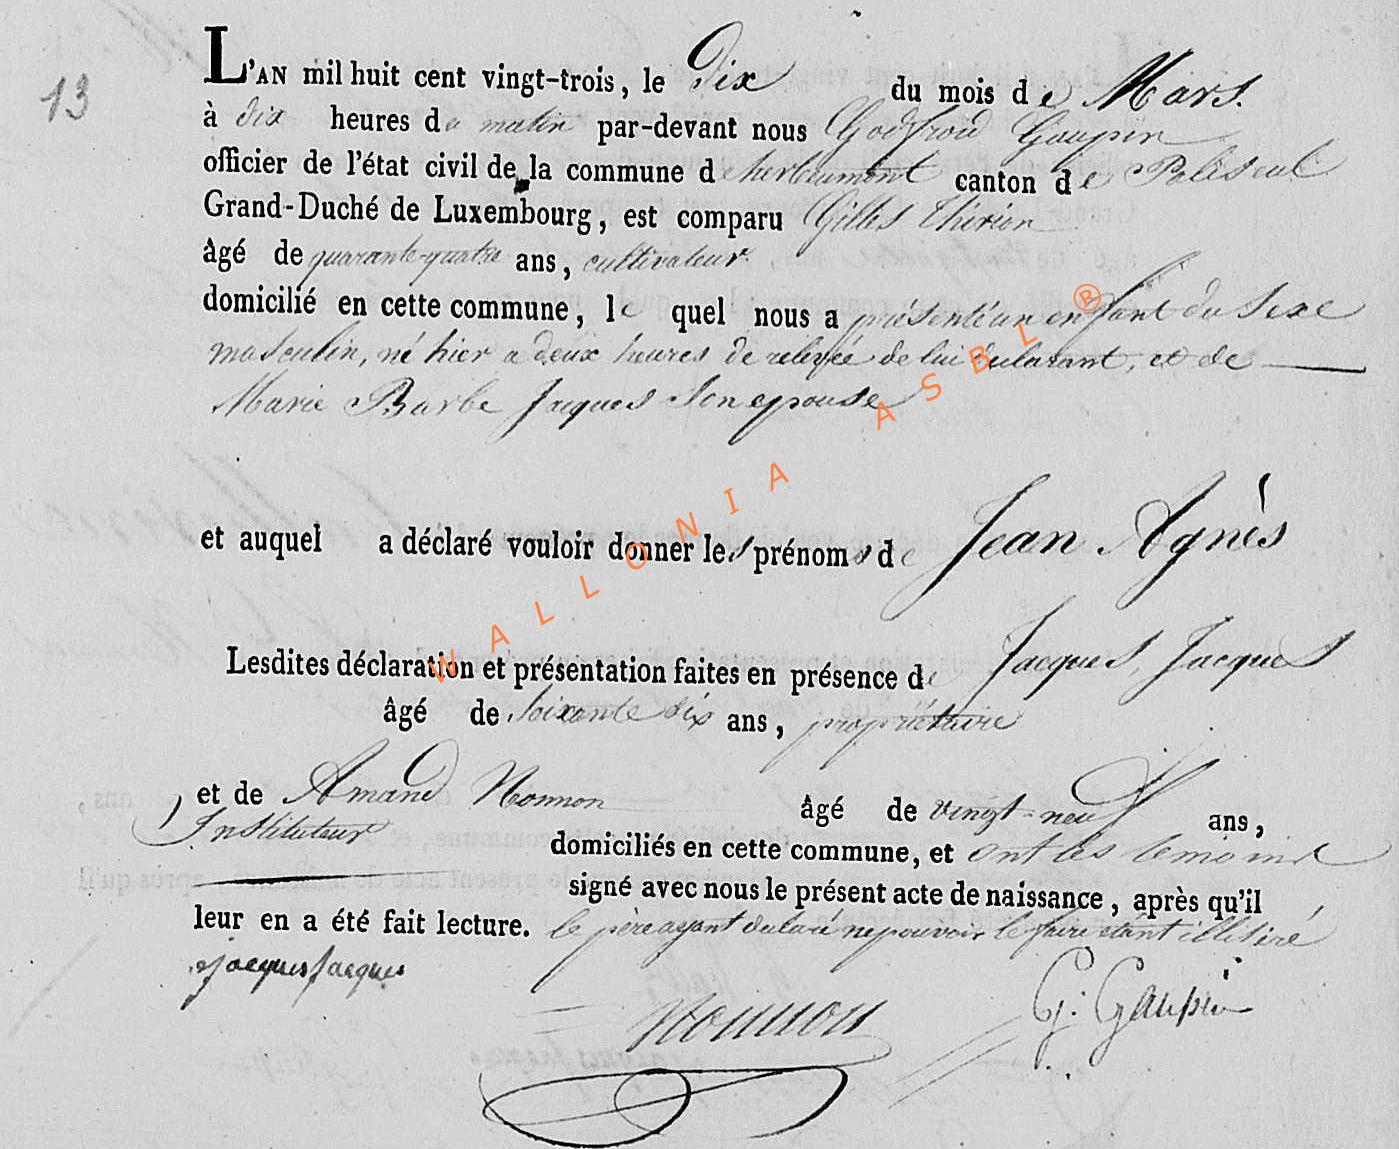 13
L'AN mil huit cent vingt-trois, le Dix du mois de Mars.
à dix heures du matin par-devant nous Godfroid Gaupin
officier de l'état civil de la commune d'herbeumont canton de Paliseul
Grand-Duché de Luxembourg, est comparu Gilles Thirion
âgé de quarante-quatre ans, cultivateur
domicilié en cette commune, le quel nous a présenté un enfant du sexe
masculin, né hier a deux heures de relevée de lui declarant, et de
Marie Barbe Jacques son epouse
et auquel a déclaré vouloir donner les prénoms de Jean Agnès
Lesdites déclaration et présentation faites en présence de Jacques, Jacques
âgé de soixante dix ans, propriétaire
et de Amand Nonnon âgé de vingt-neuf ans,
Instituteur domiciliés en cette commune, et ont les temoins
signé avec nous le présent acte de naissance, après qu'il
leur en a été fait lecture. le père ayant declaré ne pouvoir le faire étant illitéré
Jacques Jacques
Nonnon
G. Gaupin
WALLONIA ASBL ®